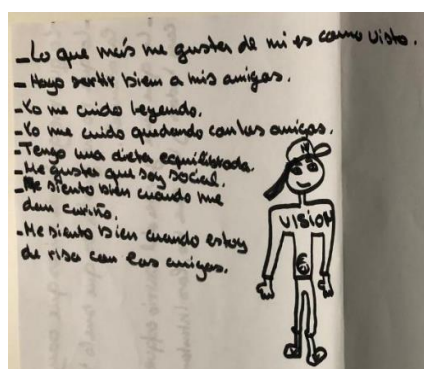 -Lo que más me gusta de mi es como visto.
-Hago sentir bien a mis amigas.
-Yo me cuido leyendo.
-Yo me cuido quedando con las amigas.
-Tengo una dieta equilibrada.
-Me gusta que soy social.
-Me siento bien cuando me
dan cariño.
-Me siento bien cuando estoy
de risa con las amigas.
N
VISION